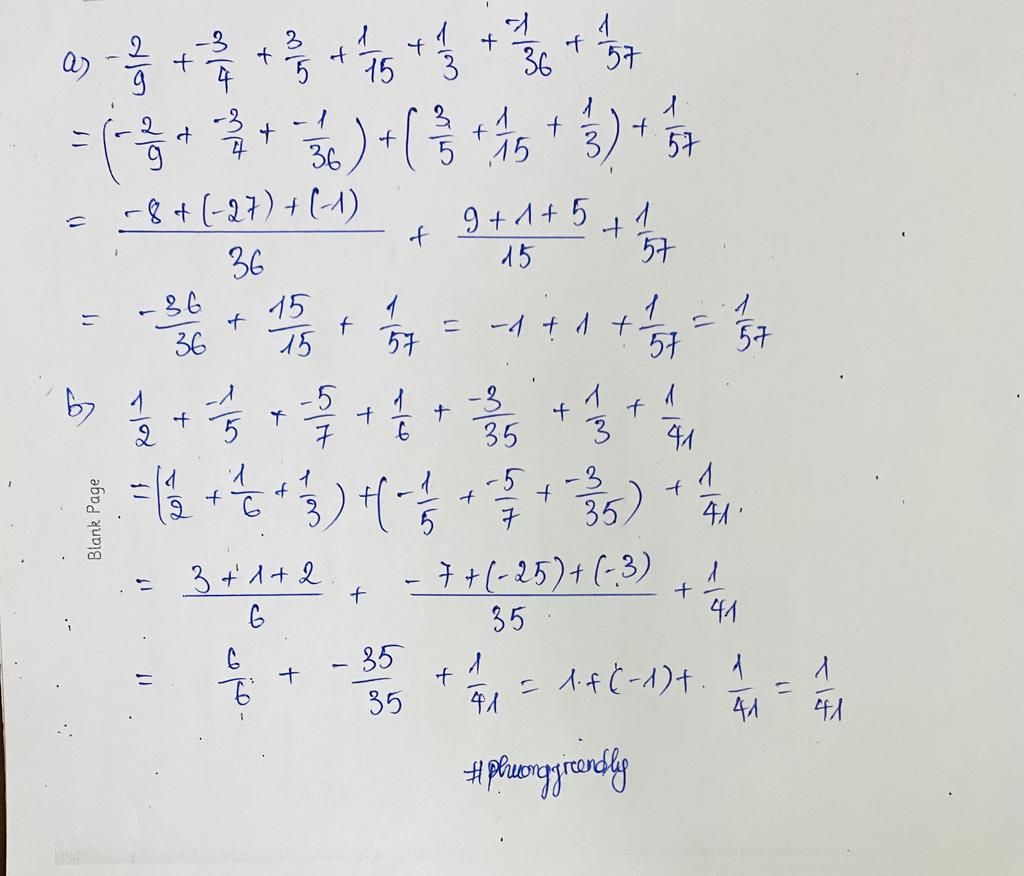 a) -2/9 + -3/4 + 3/5 + 1/15 + 1/3 + -1/36 + 1/57
= (-2/9 + -3/4 + -1/36) + (3/5 + 1/15 + 1/3) + 1/57
= -8+(-27)+(-1)/36 + 9+1+5/15 + 1/57
= -36/36 + 15/15 + 1/57 = -1 + 1 + 1/57 = 1/57
b) 1/2 + -1/5 + -5/7 + 1/6 + -3/35 + 1/3 + 1/41
= (1/2 + 1/6 + 1/3) + (-1/5 + -5/7 + -3/35) + 1/41
= 3+1+2/6 + -7+(-25)+(-3)/35 + 1/41
= 6/6 + -35/35 + 1/41 = 1+(-1)+ 1/41 = 1/41
Blank Page